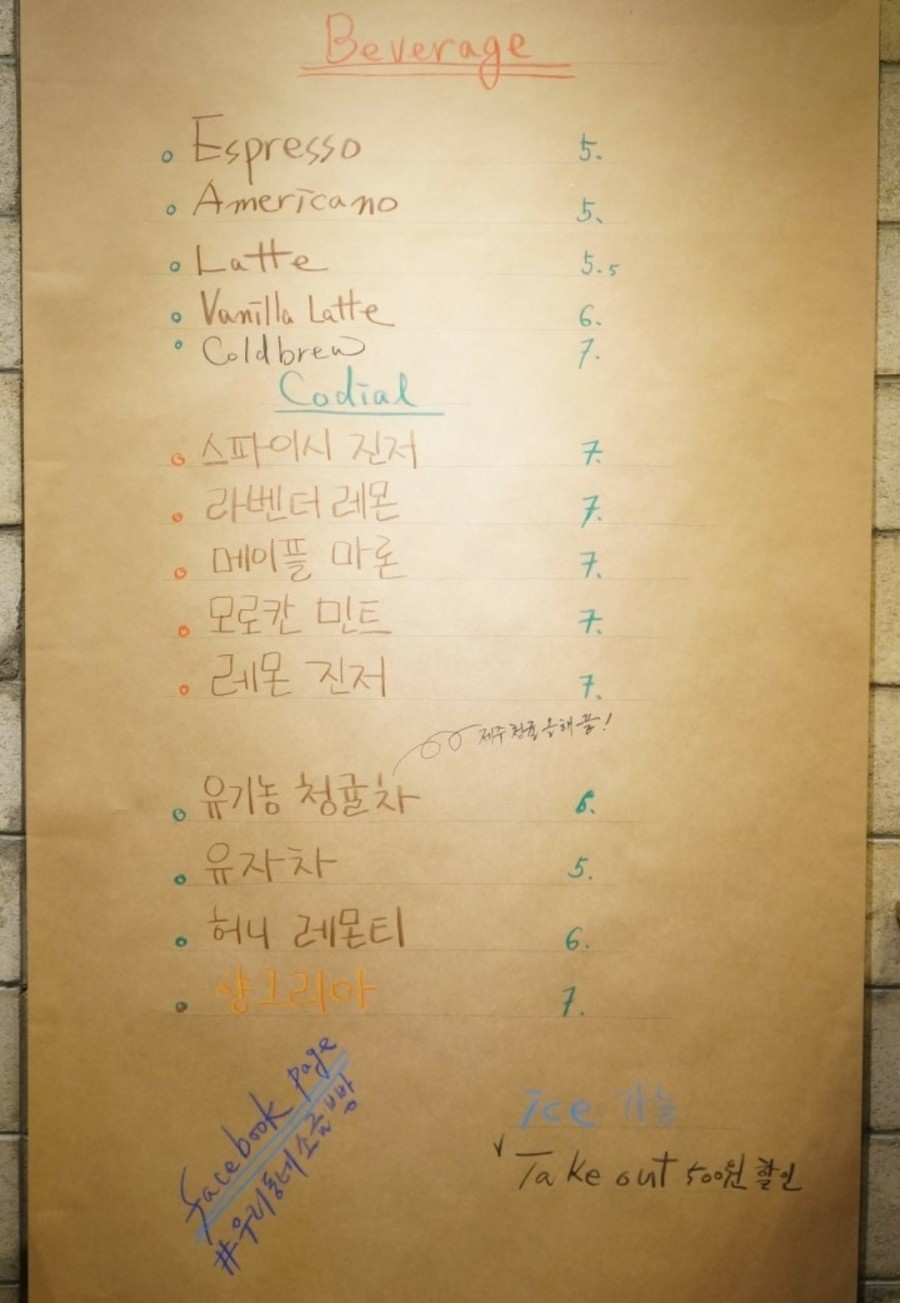 Beverage
Espresso 5.
Americano 5.
Latte 5.5
Vanilla Latte 6.
Coldbrew 7.
Codial
스파이시 진저 7.
라벤더 레몬 7.
메이플 마론 7.
모로칸 민트 7.
레몬 진저 7.
제주 청귤 올해 끝!
유기농 청귤차 6.
유자차 5.
허니 레몬티 6.
샹그리아 7.
facebook page
#우리동네소금빵
ice 가능
Take out 500원 할인